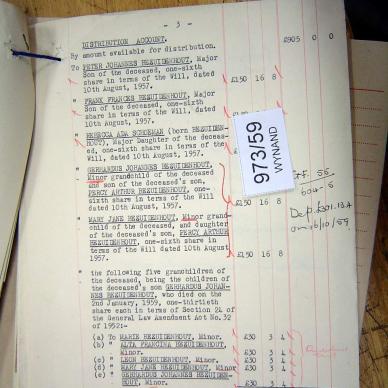 - 3 -
DISTRIBUTION ACCOUNT.
By amount available for distribution. £905 0 0
To PETER JOHANNES BEZUIDENHOUT, Major
Son of the deceased, one-sixth
share in terms of the Will, dated
10th August, 1957. £150 16 8
" FRANK FRANCES BEZUIDENHOUT, Major
Son of the deceased, one-sixth
share in terms of the Will, dated
10th August, 1957.
" REBECCA ADA SCHOEMAN (born BEZUIDEN-
HOUT), Major Daughter of the deceas-
ed, one-sixth share in terms of the
Will, dated 10th August, 1957.
" GERHARDUS JOHANNES BEZUIDENHOUT,
Minor grandchild of the deceased
and son of the deceased's son,
PERCY ARTHUR BEZUIDENHOUT, one-
sixth share in terms of the Will
dated 10th August, 1957. £150 16 8
" MARY JANE BEZUIDENHOUT, Minor grand-
child of the deceased, and daughter
of the deceased's son, PERCY ARTHUR
BEZUIDENHOUT, one-sixth share in
terms of the Will dated 10th August
1957. £150 16 8
" the following five grandchildren of
the deceased, being the children of
the deceased's son GERHARDUS JOHAN-
NES BEZUIDENHOUT, who died on the
2nd January, 1959, one-thirtieth
share each in terms of Section 24 of
the General Law Amendment Act No.32
of 1952:-
(a) To MARIE BEZUIDENHOUT, Minor. £30 3 4
(b) " FRANCINA BEZUIDENHOUT,
Minor. £30 3 4
(c) " LEON BEZUIDENHOUT, Minor. £30 3 4
(d) " MARY JANE BEZUIDENHOUT, Minor. £30 3 4
(e) " GERHARDUS JOHANNES BEZUIDEN-
HOUT, Minor. £30 3 4
973/59
WYNAND
55
604-5
on 16/10/59